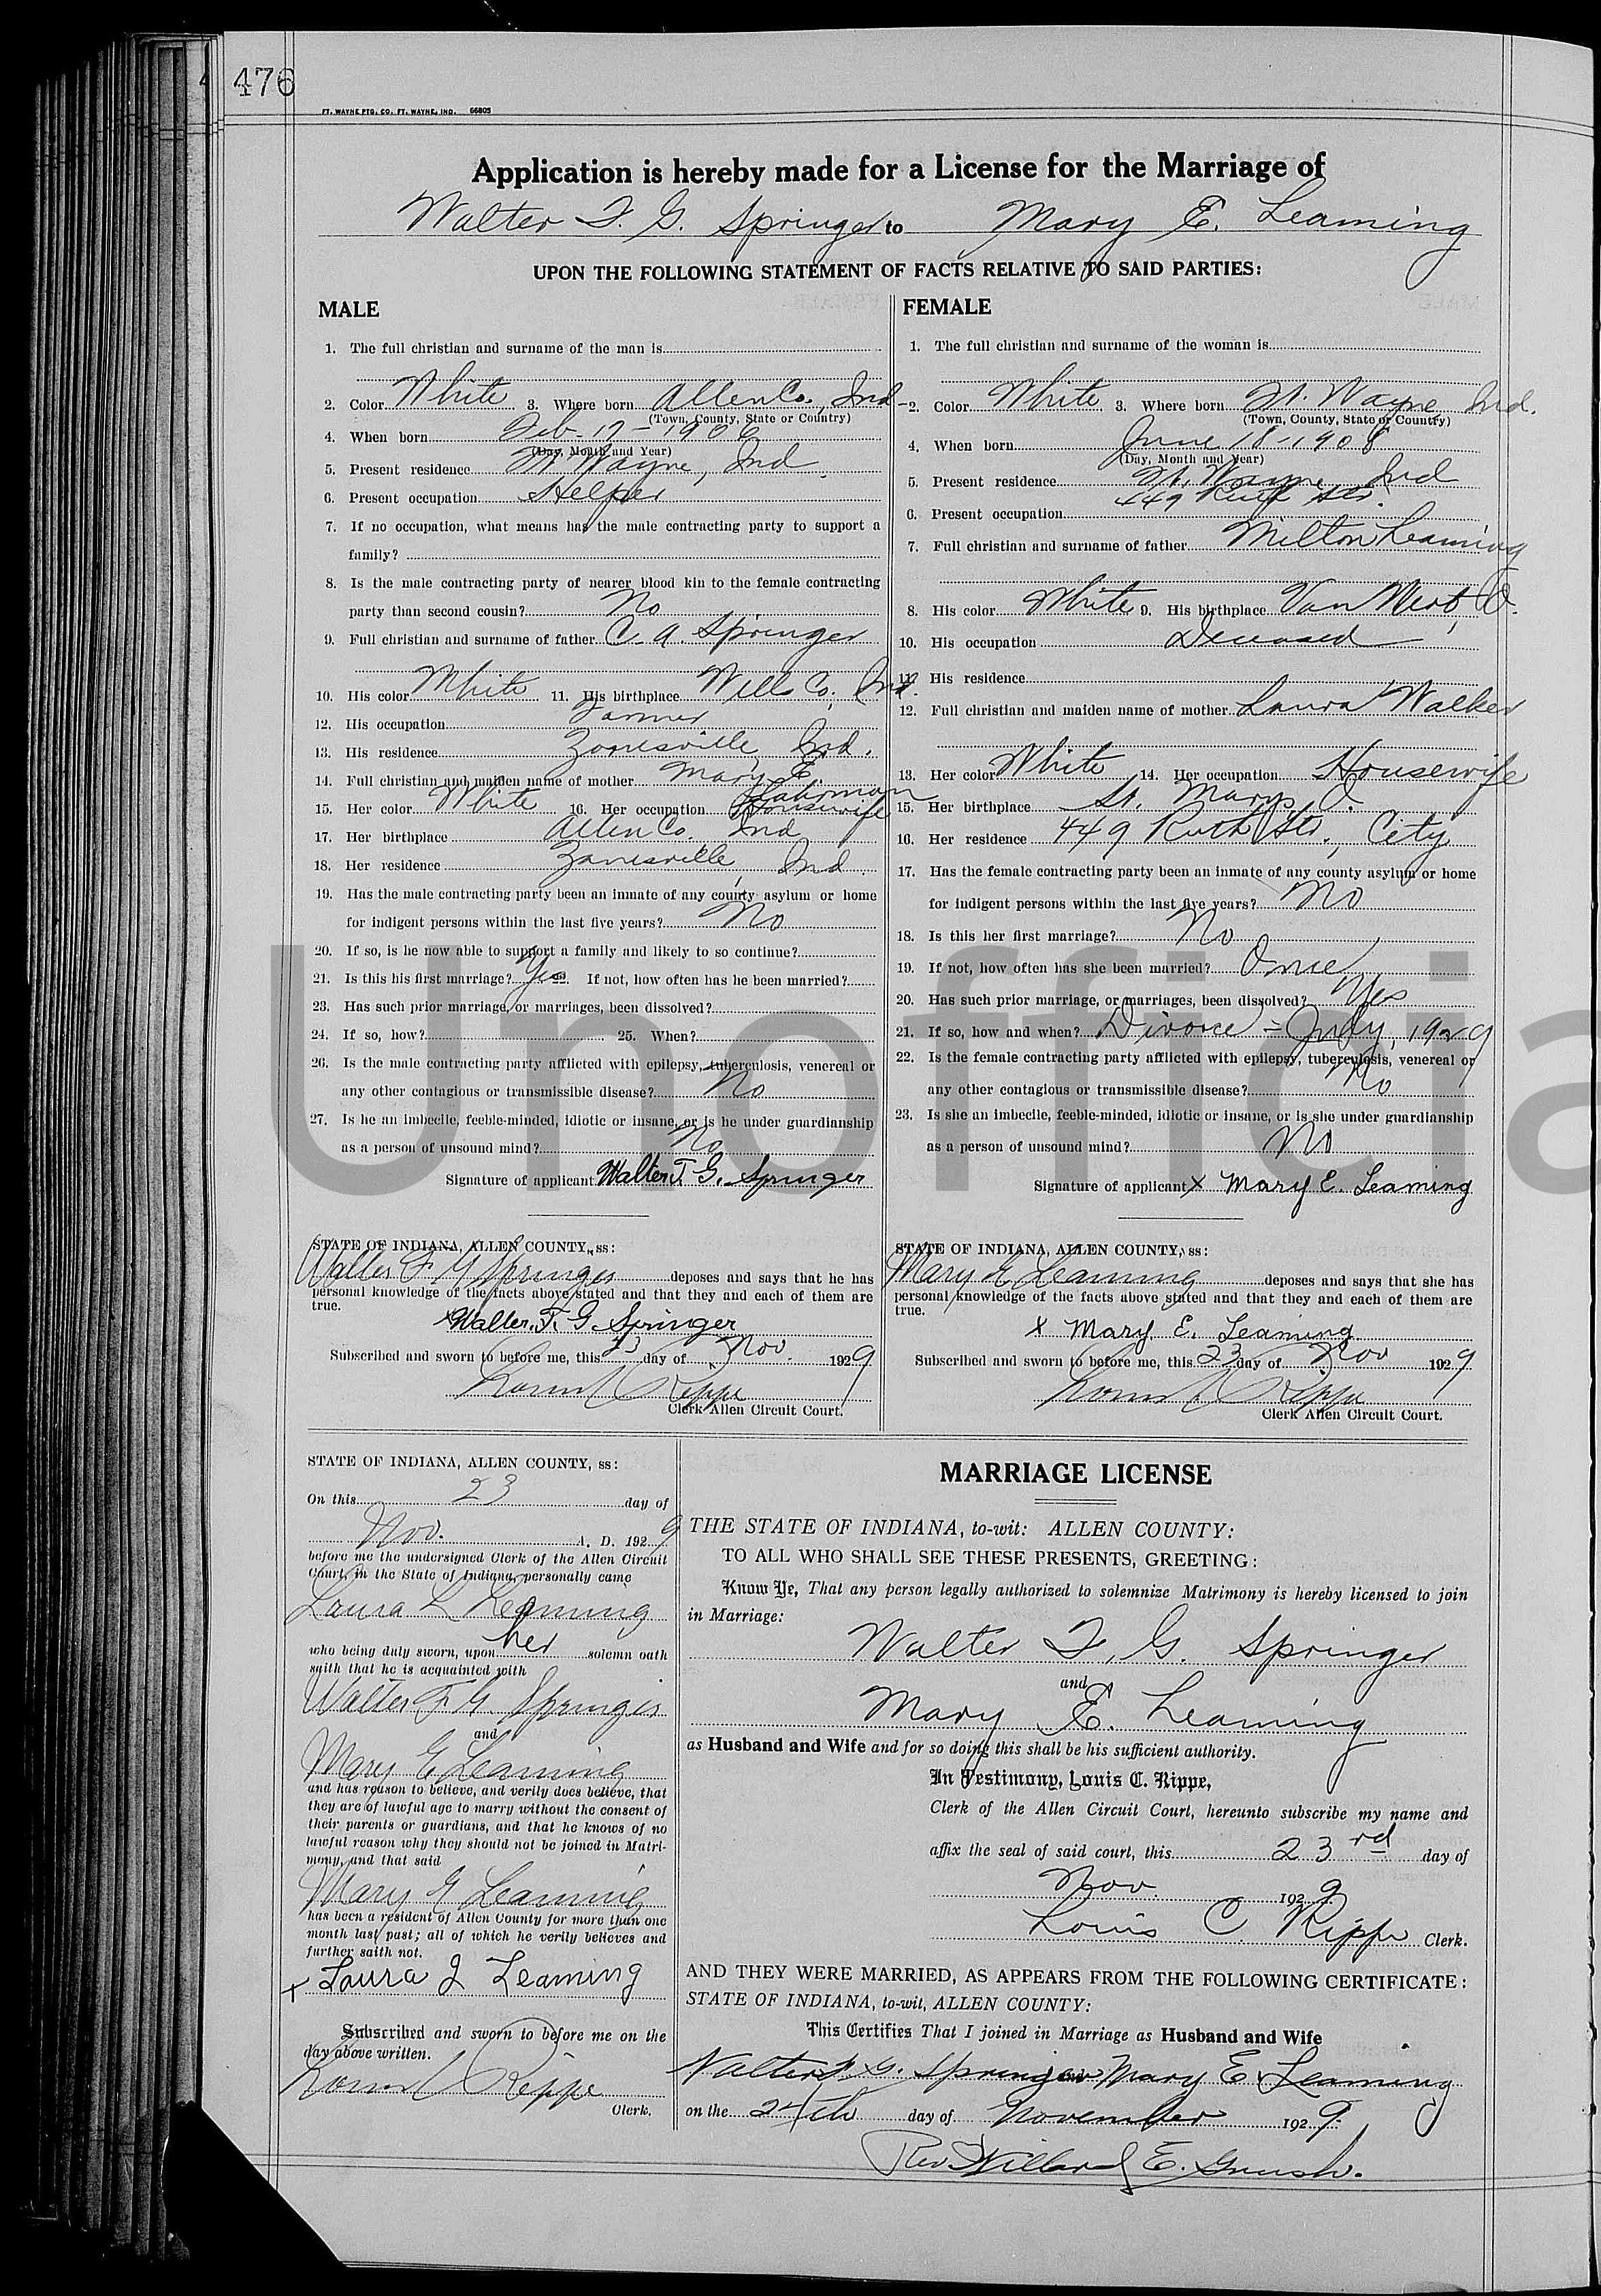 476
FT. WAYNE PTG. CO. FT. WAYNE, IND. 66805
Application is hereby made for a License for the Marriage of
Walter F. G. Springer to Mary E. Leaming
UPON THE FOLLOWING STATEMENT OF FACTS RELATIVE TO SAID PARTIES:
MALE
1. The full christian and surname of the man is
2. Color White 3. Where born Allen Co., Ind
(Town, County, State or Country)
4. When born Feb-17-1906
(Day, Month and Year)
5. Present residence Ft Wayne, Ind
6. Present occupation Helper
7. If no occupation, what means has the male contracting party to support a
family?
8. Is the male contracting party of nearer blood kin to the female contracting
party than second cousin? No
9. Full christian and surname of father C. A. Springer
10. His color White 11. His birthplace Wells Co., Ind.
12. His occupation Farmer
13. His residence Zanesville, Ind.
14. Full christian and maiden name of mother Mary E.
15. Her color White 16. Her occupation Housewife
17. Her birthplace Allen Co. Ind
18. Her residence Zanesville, Ind
19. Has the male contracting party been an inmate of any county asylum or home
for indigent persons within the last five years? No
20. If so, is he now able to support a family and likely to so continue?
21. Is this his first marriage? Yes 22. If not, how often has he been married?
23. Has such prior marriage, or marriages, been dissolved?
24. If so, how? 25. When?
26. Is the male contracting party afflicted with epilepsy, tuberculosis, venereal or
any other contagious or transmissible disease? No
27. Is he an imbecile, feeble-minded, idiotic or insane, or is he under guardianship
as a person of unsound mind? No
Signature of applicant Walter F. G. Springer
STATE OF INDIANA, ALLEN COUNTY, ss:
Walter F G Springer deposes and says that he has
personal knowledge of the facts above stated and that they and each of them are
true.
x Walter F. G. Springer
Subscribed and sworn to before me, this 23 day of Nov. 1929
Louis C Rippe
Clerk Allen Circuit Court.
FEMALE
1. The full christian and surname of the woman is
2. Color White 3. Where born Ft. Wayne Ind.
(Town, County, State or Country)
4. When born June 18-1908
(Day, Month and Year)
5. Present residence Ft. Wayne Ind
449 Ruth Str.
6. Present occupation
7. Full christian and surname of father Milton Leaming
8. His color White 9. His birthplace Van Wert, O.
10. His occupation Deceased
11. His residence
12. Full christian and maiden name of mother Laura Walker
13. Her color White 14. Her occupation Housewife
15. Her birthplace St. Marys O.
16. Her residence 449 Ruth Str., City
17. Has the female contracting party been an inmate of any county asylum or home
for indigent persons within the last five years? No
18. Is this her first marriage? No
19. If not, how often has she been married? Once
20. Has such prior marriage, or marriages, been dissolved? Yes
21. If so, how and when? Divorce - July, 1929
22. Is the female contracting party afflicted with epilepsy, tuberculosis, venereal or
any other contagious or transmissible disease? No
23. Is she an imbecile, feeble-minded, idiotic or insane, or is she under guardianship
as a person of unsound mind? No
Signature of applicant x Mary E. Leaming
STATE OF INDIANA, ALLEN COUNTY, ss:
Mary E Leaming deposes and says that she has
personal knowledge of the facts above stated and that they and each of them are
true.
x Mary E. Leaming
Subscribed and sworn to before me, this 23 day of Nov 1929
Louis C Rippe
Clerk Allen Circuit Court.
STATE OF INDIANA, ALLEN COUNTY, ss:
On this 23 day of
Nov. A. D. 1929
before me the undersigned Clerk of the Allen Circuit
Court, in the State of Indiana, personally came
Laura L Leaming
who being duly sworn, upon her solemn oath
saith that he is acquainted with
Walter F G Springer
and
Mary E Leaming
and has reason to believe, and verily does believe, that
they are of lawful age to marry without the consent of
their parents or guardians, and that he knows of no
lawful reason why they should not be joined in Matri-
mony, and that said
Mary E Leaming
has been a resident of Allen County for more than one
month last past; all of which he verily believes and
further saith not.
x Laura J Leaming
Subscribed and sworn to before me on the
day above written.
Louis C Rippe
Clerk.
MARRIAGE LICENSE
THE STATE OF INDIANA, to-wit: ALLEN COUNTY:
TO ALL WHO SHALL SEE THESE PRESENTS, GREETING:
Know Ye, That any person legally authorized to solemnize Matrimony is hereby licensed to join
in Marriage:
Walter F. G. Springer
and
Mary E. Leaming
as Husband and Wife and for so doing this shall be his sufficient authority.
In Testimony, Louis C. Rippe,
Clerk of the Allen Circuit Court, hereunto subscribe my name and
affix the seal of said court, this 23rd day of
Nov. 1929
Louis C. Rippe Clerk.
AND THEY WERE MARRIED, AS APPEARS FROM THE FOLLOWING CERTIFICATE:
STATE OF INDIANA, to-wit, ALLEN COUNTY:
This Certifies That I joined in Marriage as Husband and Wife
Walter F. G. Springer and Mary E Leaming
on the 24th day of November 1929
Rev. Willard E.
Unofficia